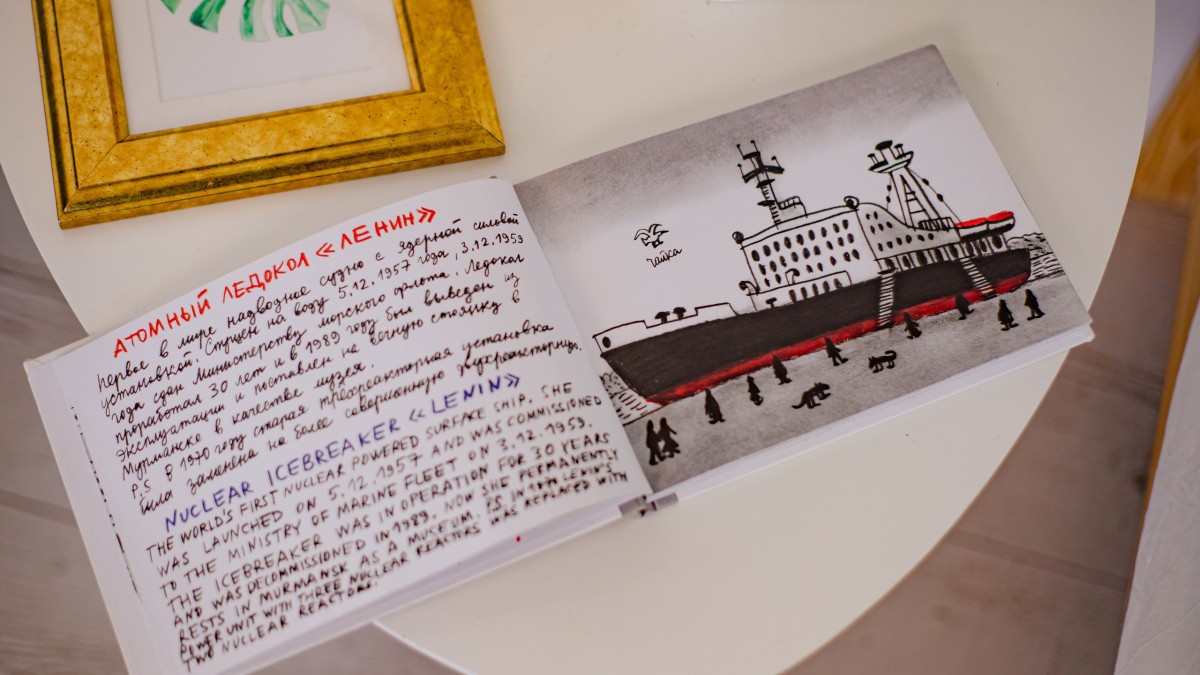 АТОМНЫЙ ЛЕДОКОЛ «ЛЕНИН»
Первое в мире надводное судно с ядерной силовой
установкой. Спущен на воду 5.12.1957 года, 3.12.1959
года сдан Министерству морского флота. Ледокол
проработал 30 лет и в 1989 году был выведен из
эксплуатации и поставлен на вечную стоянку в
Мурманске в качестве музея.
P.S в 1970 году старая трёхреакторная установка
была заменена на более совершенную двухреакторную.
NUCLEAR ICEBREAKER «LENIN»
THE WORLD'S FIRST NUCLEAR POWERED SURFACE SHIP. SHE
WAS LAUNCHED ON 5.12.1957 AND WAS COMMISSIONED
TO THE MINISTRY OF MARINE FLEET ON 3.12.1959.
THE ICEBREAKER WAS IN OPERATION FOR 30 YEARS
AND WAS DECOMMISSIONED IN 1989. NOW SHE PERMANENTLY
RESTS IN MURMANSK AS A MUCEUM. P.S. IN 1970 LENIN'S
POWER UNIT WITH THREE NUCLEAR REACTORS WAS REPLACED WITH
TWO NUCLEAR REACTORS.
чайка